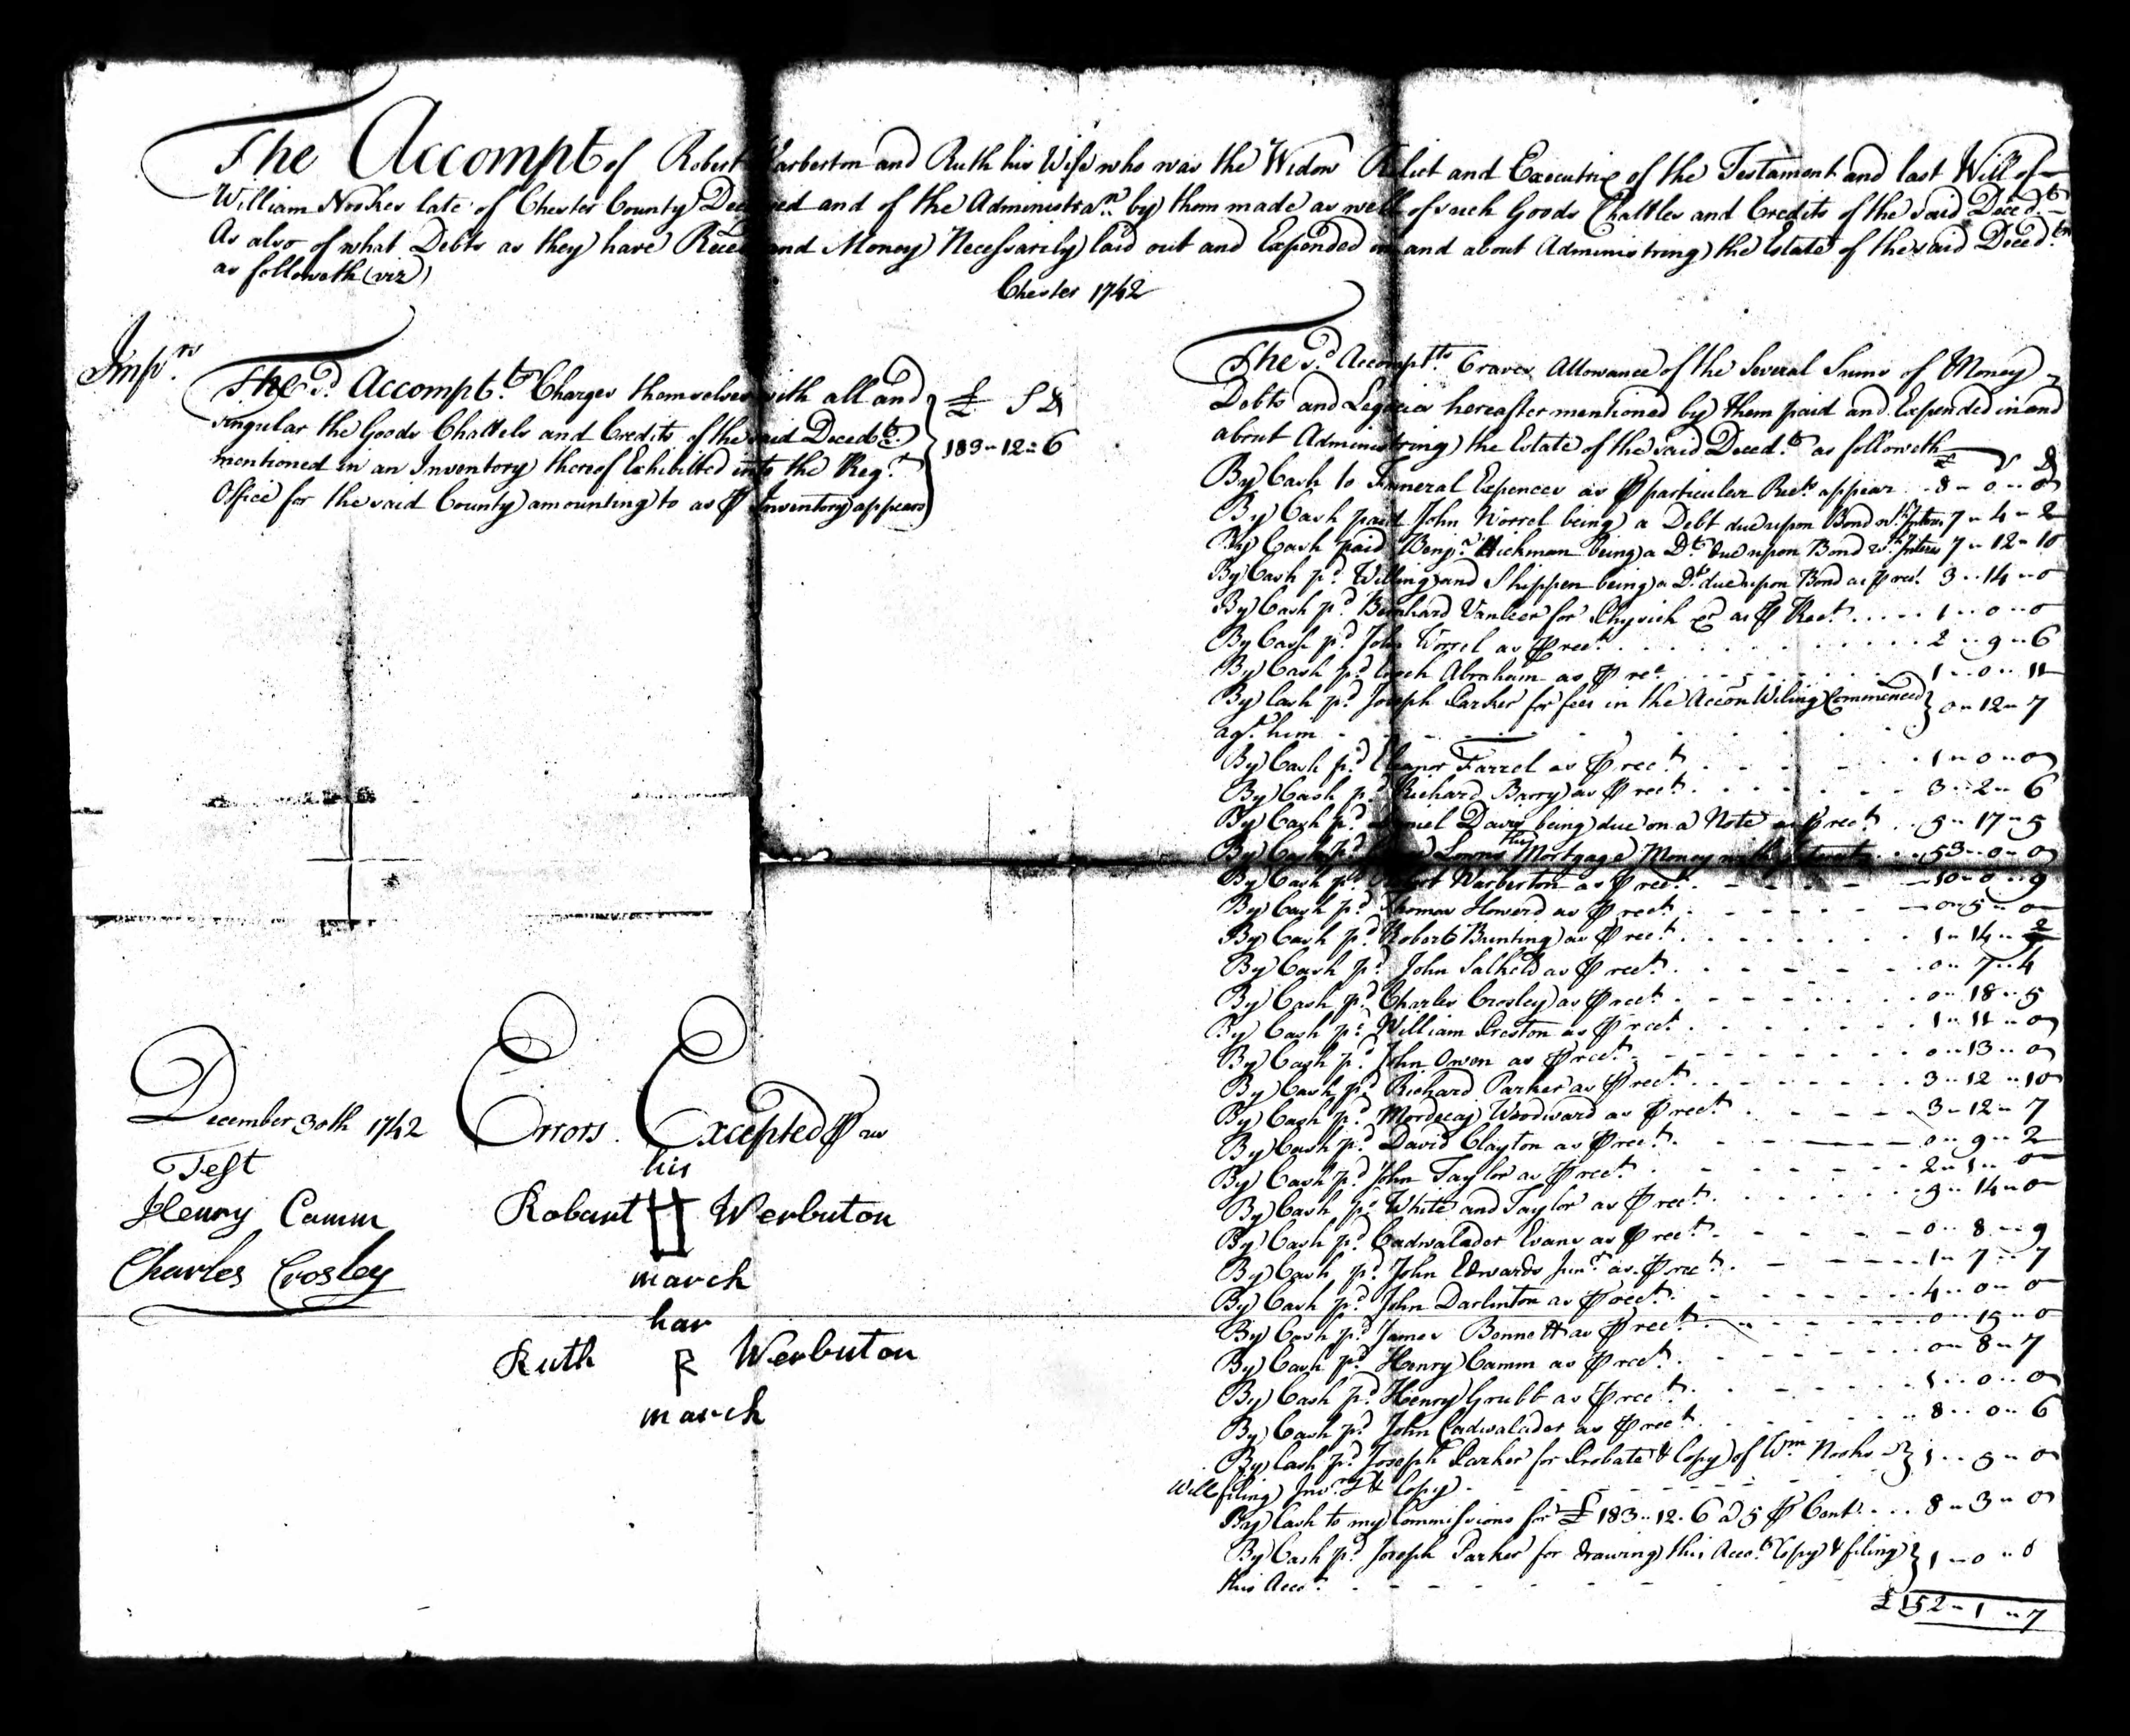 The Accompt of Robert Warberton and Ruth his Wife who was the Widow Relict and Executrix of the Testament and last Will of
William Nookes late of Chester County Deceased and of the Administra.n by them made as well of such Goods Chattles and Credits of the said Deced.t
As also of what Debts as they have Rece and Money Necessarily laid out and Expended in and about Administring the Estate of the said Deced.ts
as followeth (viz)
Chester 1742
Imp.rs
The s.d Accompt.ts Charges themselves with all and
singular the Goods Chattels and Credits of the said Decedts.
mentioned in an Inventory thereof Exhibitted into the Reg.rs
Office for the said County amounting to as ⅌ Inventory appears
£ S D
183 - 12 - 6
The s.d Accompt.ts Craves Allowance of the Several Sums of Money
Debts and Legacies hereafter mentioned by them paid and Expended in and
about Administring the Estate of the said Deced.ts as followeth
£ S D
By Cash to Funeral Expences as ⅌ particuler Rect. appear 8 - 0 - 0
By Cash paid John Worrel being a Debt due upon Bond wth. Inters 7 - 4 - 2
By Cash paid Benj.n Hickman being a Dt. due upon Bond wth. Inters 7 - 12 - 10
By Cash p.d Willing and Shippen being a Dt. due upon Bond as ⅌ rect. 3 - 14 - 0
By Cash p.d Bernhard Vanleer for Physick &c as ⅌ Rect. 1 - 0 - 0
By Cash p.d John Worrel as ⅌ rect. 2 - 9 - 6
By Cash p.d Enoch Abraham as ⅌ rect. 1 - 0 - 11
By Cash p.d Joseph Parker for fees in the Accon Wiling Commenced
agt. him 0 - 12 - 7
By Cash p.d Eleanor Farrel as ⅌ rect. 1 - 0 - 0
By Cash p.d Richard Barry as ⅌ rect. 3 - 2 - 6
By Cash p.d Davis being due on a Note as ⅌ rect. 5 - 17 - 5
By Cash p.d Lownes this Mortgage Money with Interest 53 - 0 - 0
By Cash p.d Robert Warberton as ⅌ rect. 10 - 0 - 9
By Cash p.d Thomas Howerd as ⅌ rect. 0 - 5 - 0
By Cash p.d Robert Bunting as ⅌ rect. 1 - 14 - 2
By Cash p.d John Salkeld as ⅌ rect. 0 - 7 - 4
By Cash p.d Charles Crosley as ⅌ rect. 0 - 18 - 5
By Cash p.d William Preston as ⅌ rect. 1 - 11 - 0
By Cash p.d John Owen as ⅌ rect. 0 - 13 - 0
By Cash p.d Richard Parker as ⅌ rect. 3 - 12 - 10
By Cash p.d Mordecaj Woodward as ⅌ rect. 3 - 12 - 7
By Cash p.d David Clayton as ⅌ rect. 0 - 9 - 2
By Cash p.d John Taylor as ⅌ rect. 2 - 1 - 0
By Cash p.d White and Taylor as ⅌ rect. 9 - 14 - 0
By Cash p.d Cadwalader Evans as ⅌ rect. 0 - 8 - 9
By Cash p.d John Edwards Junr. as ⅌ rect. 1 - 7 - 7
By Cash p.d John Darlinton as ⅌ rect. 4 - 0 - 0
By Cash p.d James Bennett as ⅌ rect. 0 - 15 - 0
By Cash p.d Henry Camm as ⅌ rect. 0 - 8 - 7
By Cash p.d Henry Grubb as ⅌ rect. 1 - 0 - 0
By Cash p.d John Cadwalader as ⅌ rect. 8 - 0 - 6
By Cash p.d Joseph Parker for Probate & Copy of Wm Nookes
Will filing Inv.ry & Copy 1 - 5 - 0
By Cash to my Commissions for £183 - 12 - 6 a 5 ⅌ Cent. 8 - 3 - 0
By Cash p.d Joseph Parker for drawing this Acco.t Copy & filing
this Acco.t 1 - 0 - 0
£152 - 1 - 7
December 30th 1742
Errors Excepted ⅌ us
Test
Henry Camm
Charles Crosley
his
Robart H Werbuton
march
har
Ruth R Werbuton
march